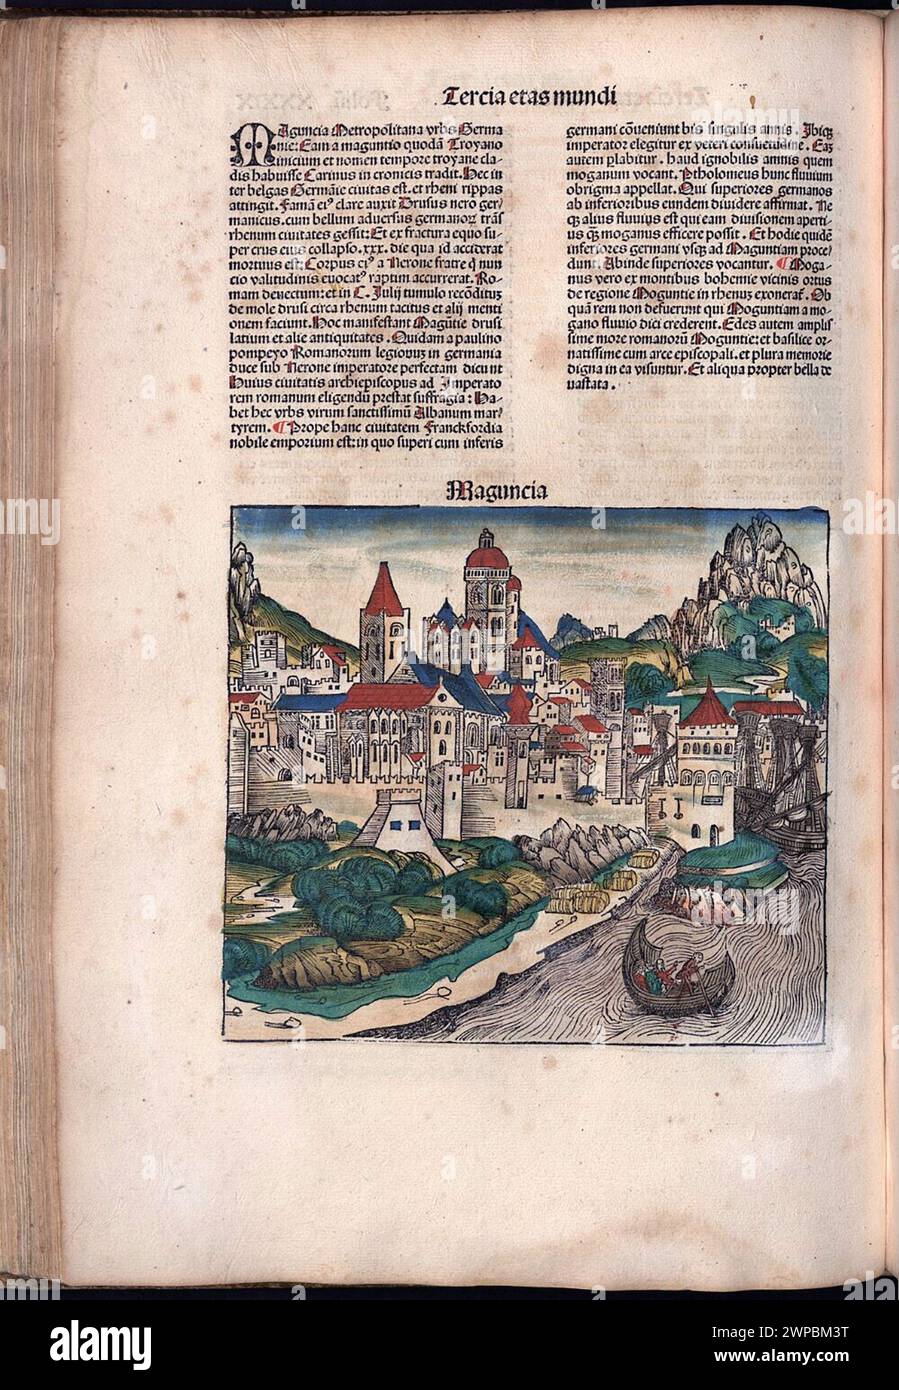 Tercia etas mundi
MAguncia Metropolitana vrbs Germa
nie: Eam a maguntio quodā Troyano
inicium et nomen tempore troyane cla-
dis habuisse Carinus in cronicis tradit. Hec in
ter belgas Germāie ciuitas est. et rheni rippas
attingit. Famā eiꝰ clare auxit Drusus nero ger-
manicus. cum bellum aduersus germanoꝝ trās
rhenum ciuitates gessit: Et ex fractura equo su-
per crus eius collapso. xxx. die qua id acciderat
mortuus est: Corpus eiꝰ a Nerone fratre q̄ nun
cio valitudinis euocatꝰ raptim accurrerat. Ro-
mam deuectum: et in C. Julij tumulo recōditūꝫ
de mole drusi circa rhenum tacitus et alij menti
onem faciunt. Hoc manifestant Magūtie drusi
latium et alie antiquitates. Quidam a paulino
pompeyo Romanorum legionuꝫ in germania
duce sub Nerone imperatore perfectam dicunt
Huius ciuitatis archiepiscopus ad Imperato
rem romanum eligendū prestat suffragia: Ha-
bet hec vrbs virum sanctissimū Albanum mar/
tyrem. ¶ Prope hanc ciuitatem Franckfordia
nobile emporium est: in quo superi cum inferis
germani cōueniunt bis singulis annis. Ibiqꝫ
imperator elegitur ex veteri consuetudine. Eaꝫ
autem p̄labitur. haud ignobilis amnis quem
moganum vocant. Ptholomeus hunc fluuium
obrigma appellat. Qui superiores germanos
ab inferioribus eundem diuidere affirmat. Ne
qꝫ alius fluuius est qui eam diuisionem aperti-
us q̄ꝫ moganus efficere possit. Et hodie quidē
inferiores germani vsqꝫ ad Maguntiam proce/
dunt. Abinde superiores vocantur. ¶ Moga-
nus vero ex montibus bohemie vicinis ortus
de regione Moguntie in rhenuꝫ exonerat̄. Ob
quam rem non defuerunt qui Moguntiam a mo-
gano fluuio dici crederent. Edes autem amplis
sime more romanorū Moguntie: et basilice or-
natissime cum arce episcopali. et plura memorie
digna in ea visuntur. Et aliqua propter bella de
uastata.
Maguncia
alamy
Image ID: 2WPBM3T
www.alamy.com